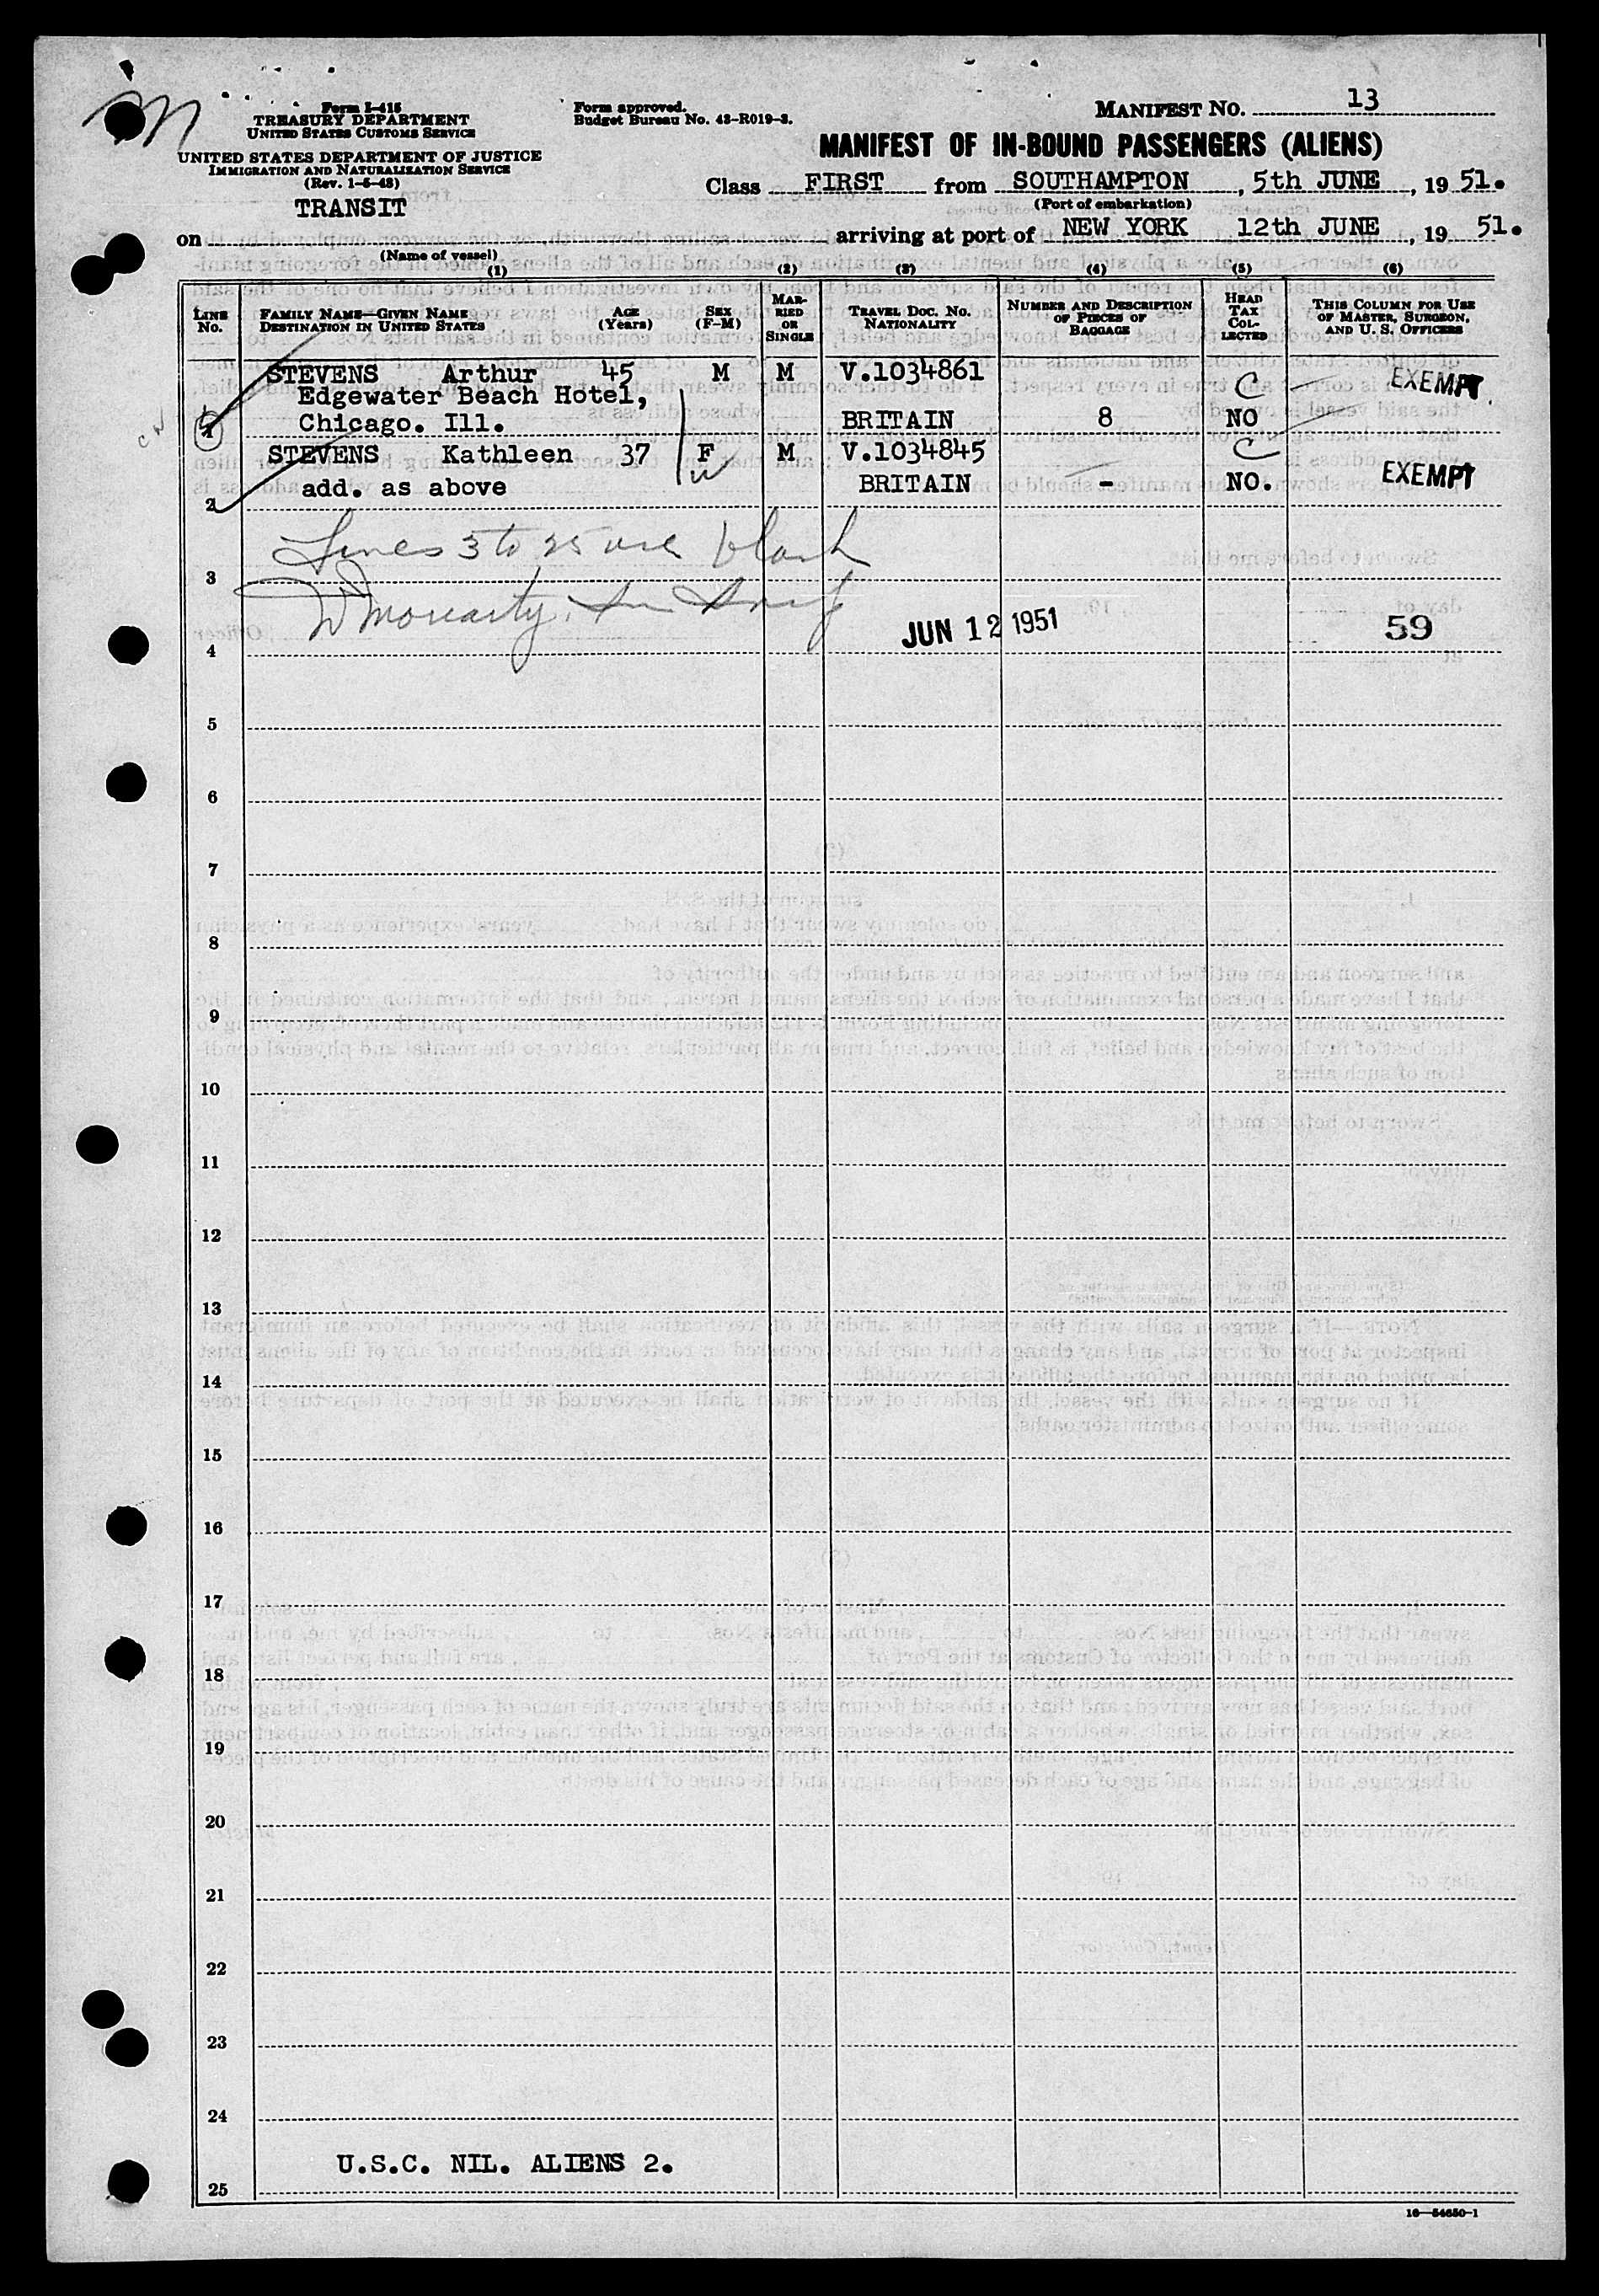 Form I-415
TREASURY DEPARTMENT
UNITED STATES CUSTOMS SERVICE
UNITED STATES DEPARTMENT OF JUSTICE
IMMIGRATION AND NATURALIZATION SERVICE
(Rev. 1-5-48)
TRANSIT
Form approved.
Budget Bureau No. 43-R019-3.
MANIFEST NO. 13
MANIFEST OF IN-BOUND PASSENGERS (ALIENS)
Class FIRST from SOUTHAMPTON, 5th JUNE, 19 51.
(Port of embarkation)
on arriving at port of NEW YORK 12th JUNE, 19 51.
(Name of vessel)
(1) (2) (3) (4) (5) (6)
LINE No. FAMILY NAME—GIVEN NAME DESTINATION IN UNITED STATES AGE (Years) SEX (F-M) MARRIED OR SINGLE TRAVEL DOC. NO. NATIONALITY NUMBER AND DESCRIPTION OF PIECES OF BAGGAGE HEAD TAX COLLECTED THIS COLUMN FOR USE OF MASTER, SURGEON, AND U. S. OFFICERS
STEVENS Arthur 45 M M V.1034861 C EXEMPT
Edgewater Beach Hotel,
1 Chicago. Ill. BRITAIN 8 NO
STEVENS Kathleen 37 F M V.1034845 C
2 add. as above BRITAIN - NO. EXEMPT
Lines 3 to 25 are blank
3
W Moriarty
JUN 12 1951 59
4
5
6
7
8
9
10
11
12
13
14
15
16
17
18
19
20
21
22
23
24
U.S.C. NIL. ALIENS 2.
25
16—54650-1